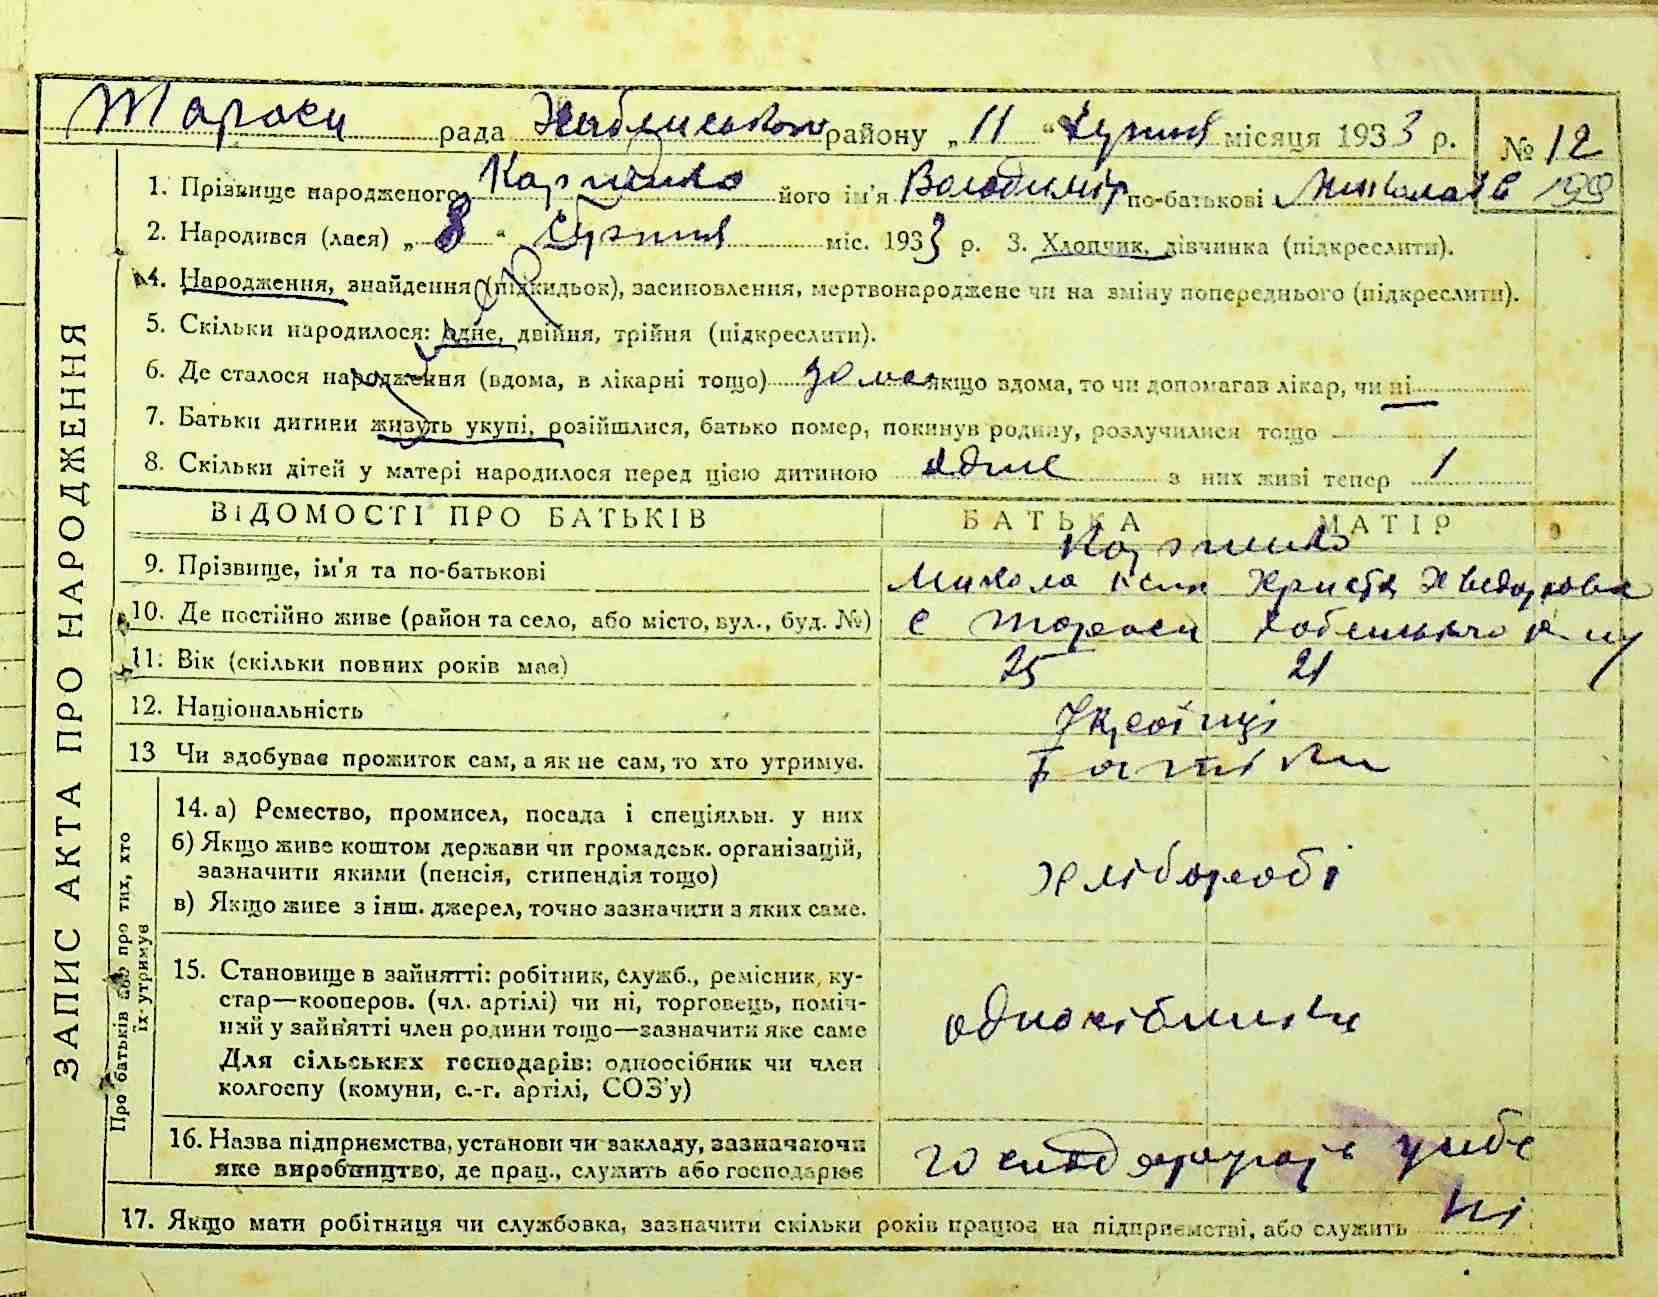 Тараси рада Хабенського району „ 11 “ серпня місяця 1933 р. № 12
1. Прізвище народженого його ім'я Володимір по-батькові 199
2. Народився (лася) „ 8 “ Серпня міс. 1933 р. 3. Хлопчик, дівчинка (підкреслити).
4. Народження, знайдення (підкидьок), засиновлення, мертвонароджене чи на зміну попереднього (підкреслити).
5. Скільки народилося: одне, двійня, трійня (підкреслити).
6. Де сталося народження (вдома, в лікарні тощо) дома якщо вдома, то чи допомагав лікар, чи ні
7. Батьки дитини живуть укупі, розійшлися, батько помер, покинув родину, розлучилися тощо
8. Скільки дітей у матері народилося перед цією дитиною одне з них живі тепер 1
ВІДОМОСТІ ПРО БАТЬКІВ БАТЬКА МАТІР
9. Прізвище, ім'я та по-батькові
Микола Христя Хведоровна
10. Де постійно живе (район та село, або місто, вул., буд. №) с Тараси
11. Вік (скільки повних років має) 25 21
12. Національність Українці
13 Чи здобуває прожиток сам, а як не сам, то хто утримує. Батьки
14. а) Ремество, промисел, посада і спеціяльн. у них
б) Якщо живе коштом держави чи громадськ. організацій,
зазначити якими (пенсія, стипендія тощо) хлібороби
в) Якщо живе з інш. джерел, точно зазначити з яких саме.
15. Становище в зайнятті: робітник, служб., ремісник, ку-
стар—кооперов. (чл. артілі) чи ні, торговець, поміч-
ний у зайнятті член родини тощо—зазначити яке саме одноосібники
Для сільських господарів: одноосібник чи член
колгоспу (комуни, с.-г. артілі, СОЗ'у)
16. Назва підприємства, установи чи закладу, зазначаючи
яке виробництво, де прац., служить або господарює господарують у себе
17. Якщо мати робітниця чи службовка, зазначити скільки років працює на підприємстві, або служить ні
ЗАПИС АКТА ПРО НАРОДЖЕННЯ
Про батьків або про тих, хто
їх утримує